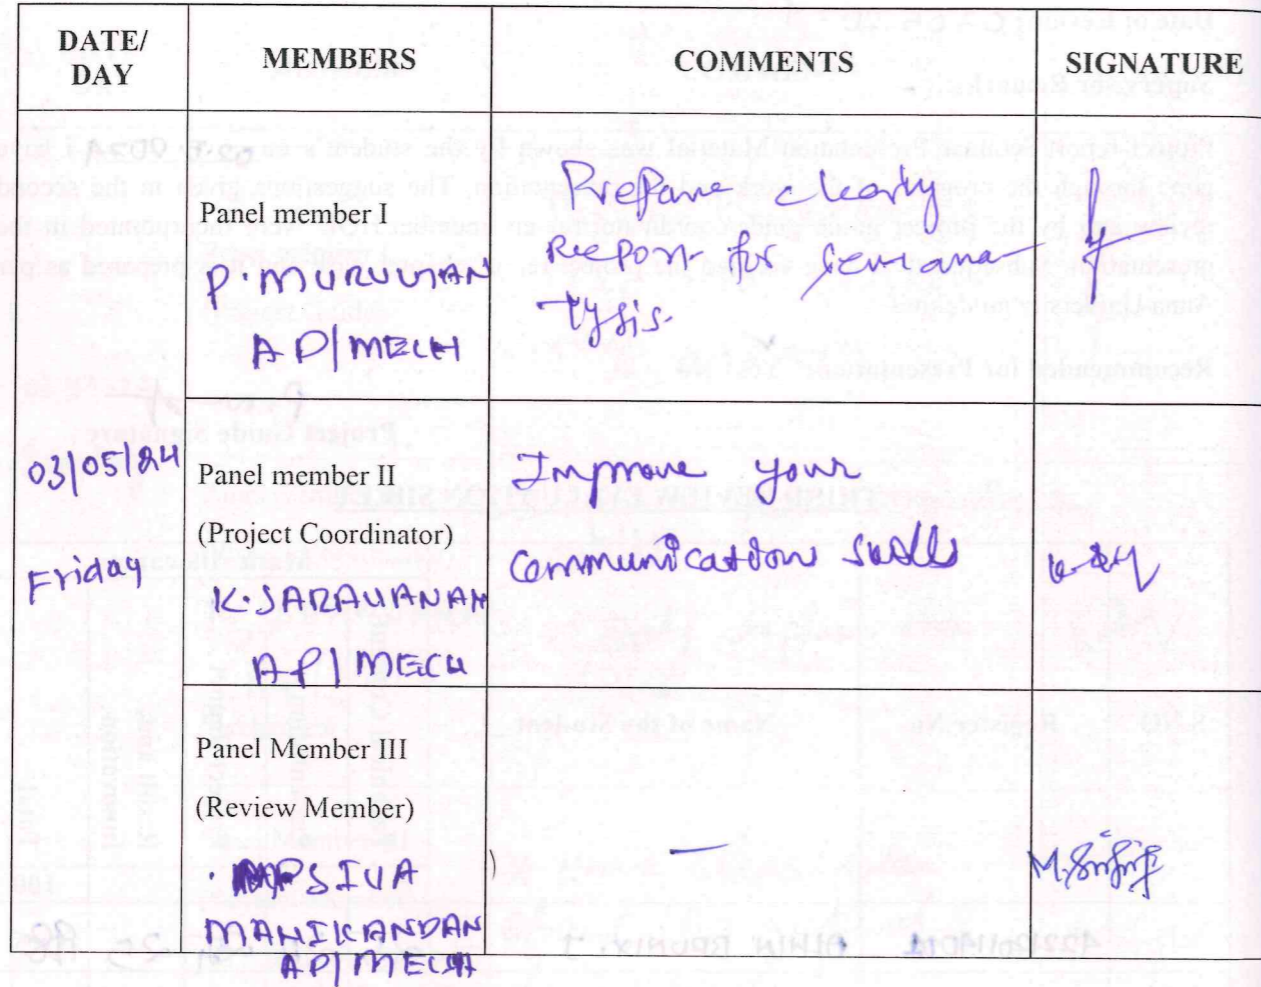 DATE/
DAY
MEMBERS
COMMENTS
SIGNATURE
03/05/24
Friday
Panel member I
P. MURUGAN
AP/MECH
Prepare clearly
Report for
Panel member II
(Project Coordinator)
K. SARAVANAN
AP/MECH
Improve your
Communication skills
Panel Member III
(Review Member)
SIVA
MANIKANDAN
AP/MECH
—